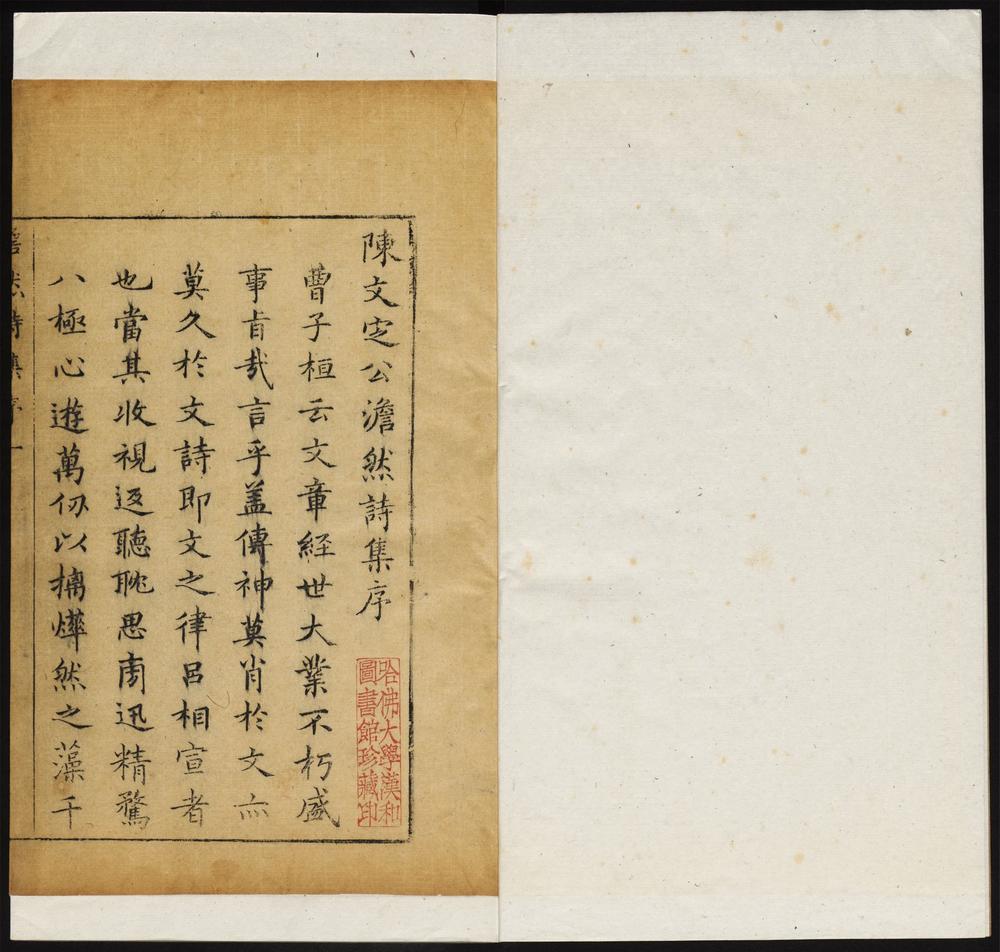 陳文定公澹然詩集序
曹子桓云文章経世大業不朽盛
事旨哉言乎盖傳神莫肖於文亦
莫久於文詩即文之律呂相宣者
也當其收視返聽耽思旁迅精騖
八極心遊萬仞以摛爗然之藻千
澹然詩集序一
哈佛大學漢和
圖書館珍藏印